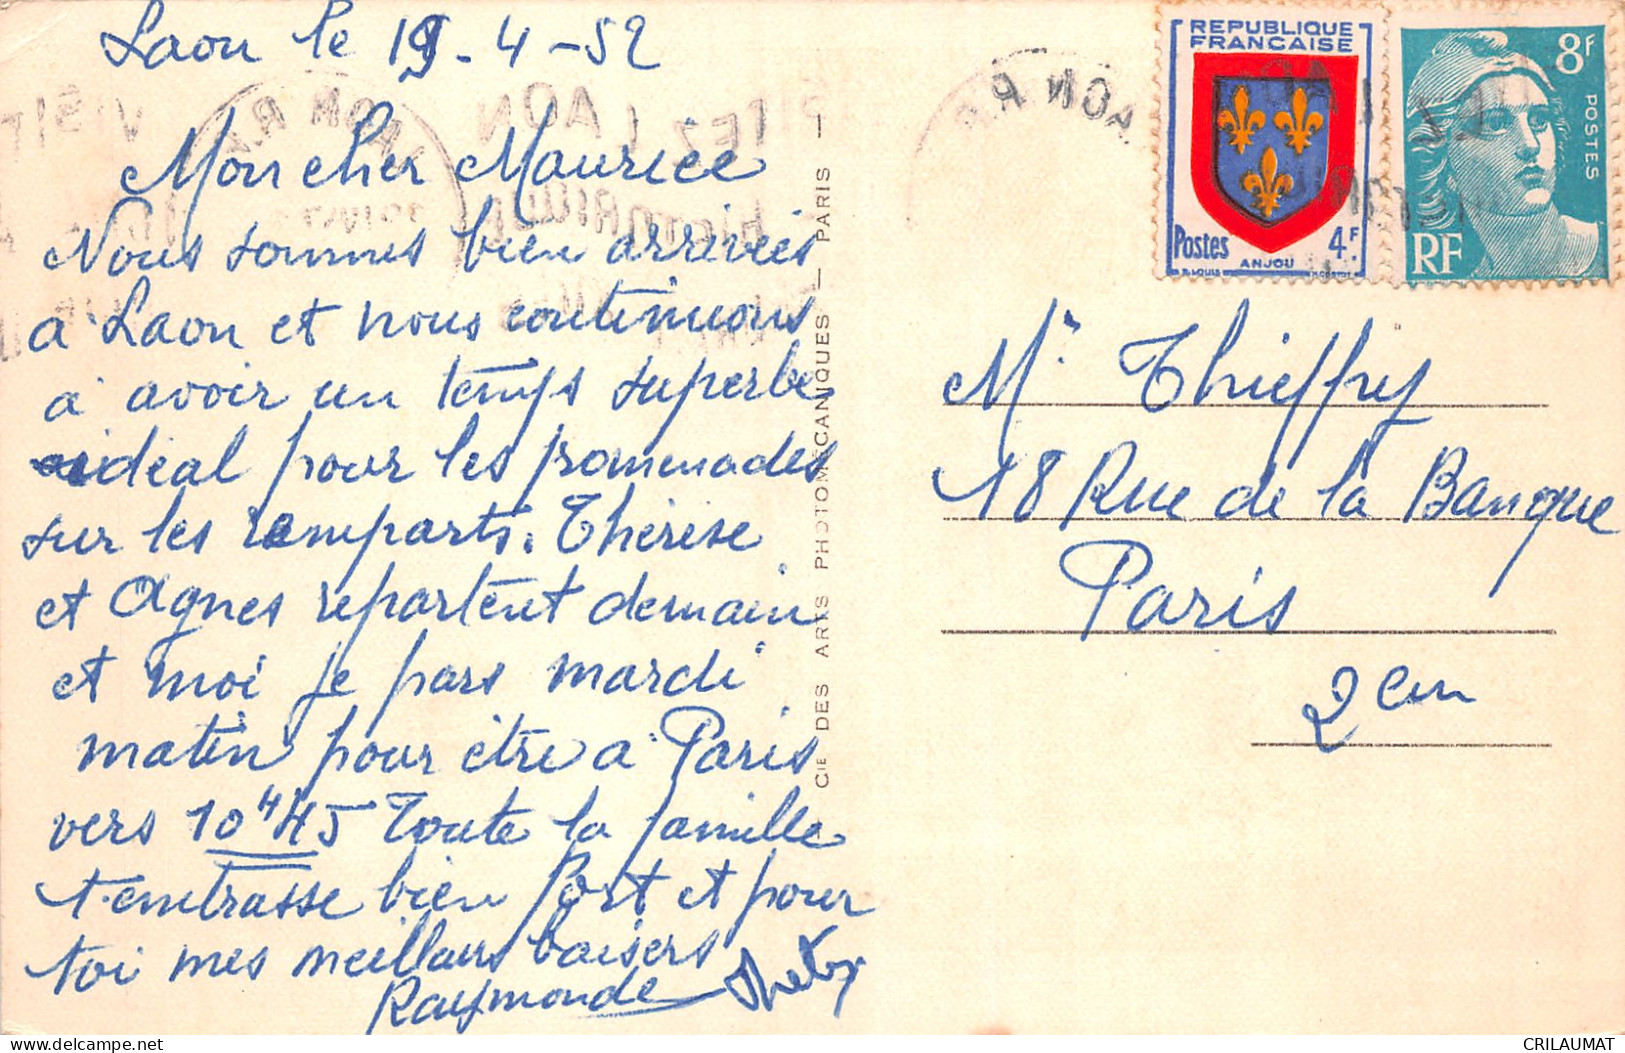 Laon le 19-4-52
Mon cher Maurice
Nous sommes bien arrivés
à Laon et nous continuons
à avoir un temps superbe
idéal pour les promenades
sur les remparts. Thérèse
et Agnes repartent demain
et moi je pars mardi
matin pour être à Paris
vers 10H45 Toute la famille
t'embrasse bien fort et pour
toi mes meilleurs baisers
Raymonde
CIE DES ARTS PHOTOMÉCANIQUES — PARIS —
REPUBLIQUE
FRANCAISE
Postes 4F.
ANJOU
R. LOUIS
8F
POSTES
RF
Mr Thieffry
18 Rue de la Banque
Paris
2em
CRILAUMAT